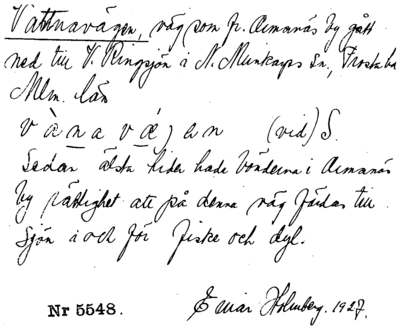 Vattnavägen, väg som fr. Ormanäs by gått
ned till V. Ringsjön i N. Munkarps Sn, Frosta hd
Mlm. län
v à n a v ä j e n (vid) S.
Sedan älsta tider hade bönderna i Ormanäs
by rättighet att på denna väg färdas till
Sjön i och för fiske och dyl.
Nr 5548. Einar Holmberg. 1927.